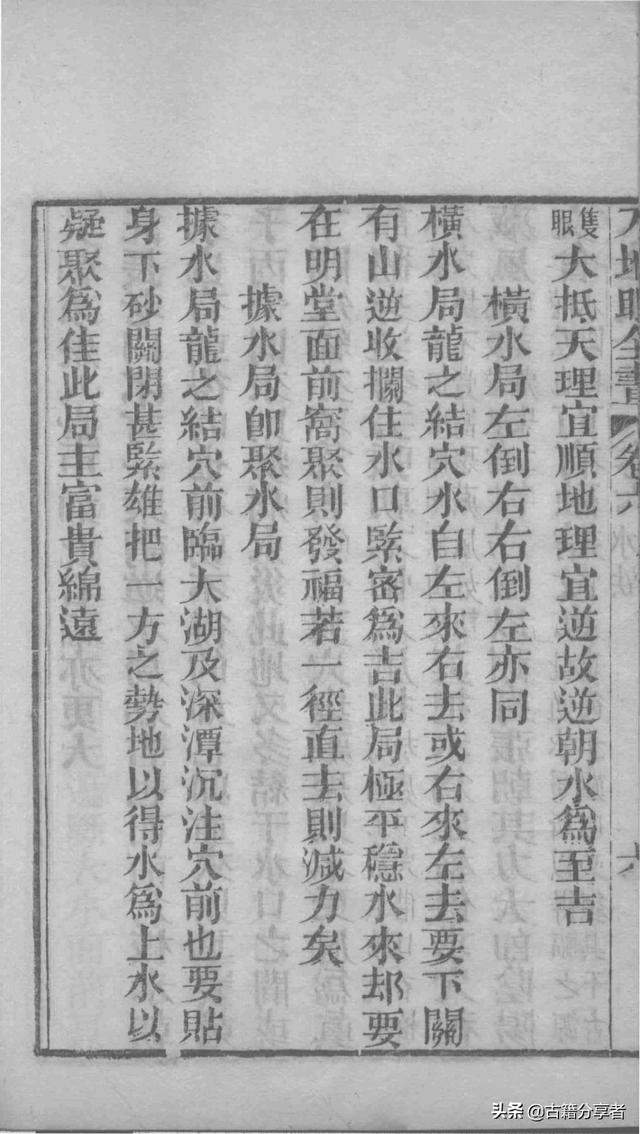 地眼全書 卷六 水法 六
隻眼大抵天理宜順地理宜逆故逆朝水為至吉
橫水局左倒右右倒左亦同
橫水局龍之結穴水自左來右去或右來左去要下關
有山逆收攔住水口緊密為吉此局極平穩水來却要
在明堂面前窩聚則發福若一徑直去則減力矣
據水局卽聚水局
據水局龍之結穴前臨大湖及深潭沉注穴前也要貼
身下砂關閉甚緊雄把一方之勢地以得水為上水以
疑聚為佳此局主富貴綿遠
头条 @古籍分享者